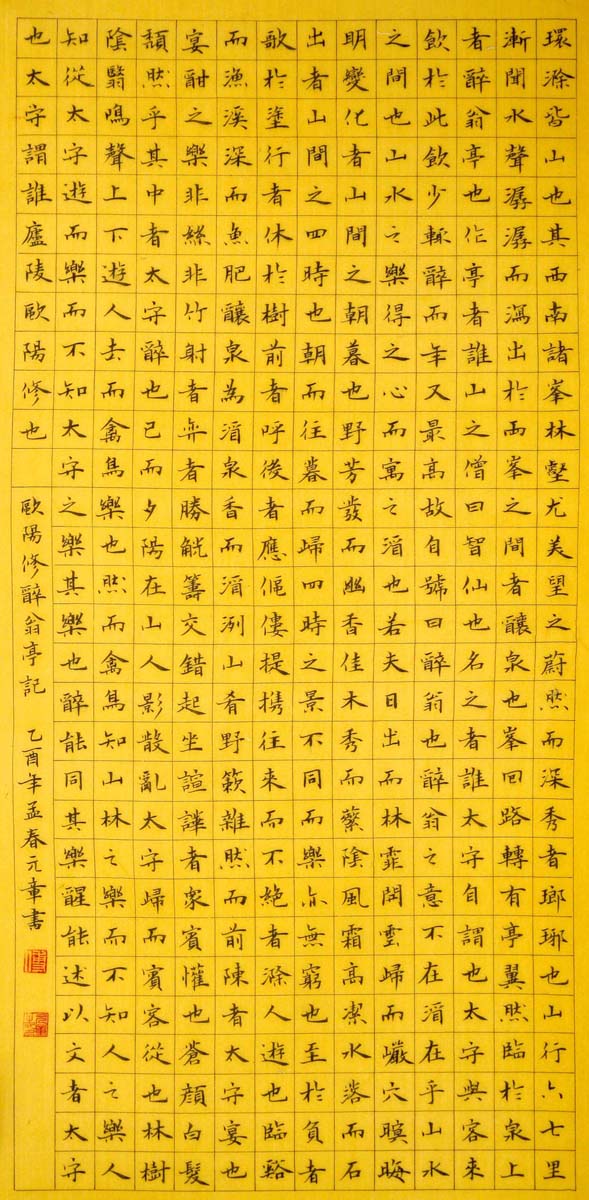 環滁皆山也其西南諸峯林壑尤美望之蔚然而深秀者瑯琊也山行六七里
漸聞水聲潺潺而瀉出於兩峯之間者釀泉也峯回路轉有亭翼然臨於泉上
者醉翁亭也作亭者誰山之僧曰智仙也名之者誰太守自謂也太守與客來
飲於此飲少輒醉而年又最高故自號曰醉翁也醉翁之意不在酒在乎山水
之間也山水之樂得之心而寓之酒也若夫日出而林霏開雲歸而巖穴暝晦
明變化者山間之朝暮也野芳發而幽香佳木秀而蘩陰風霜高潔水落而石
出者山間之四時也朝而往暮而歸四時之景不同而樂亦無窮也至於負者
歌於塗行者休於樹前者呼後者應傴僂提携往來而不絕者滁人遊也臨谿
而漁溪深而魚肥釀泉為酒泉香而酒洌山肴野蔌雜然而前陳者太守宴也
宴酣之樂非絲非竹射者弈者勝觥籌交錯起坐諠譁者衆賓懽也蒼顏白髮
頹然乎其中者太守醉也已而夕陽在山人影散亂太守歸而賓客從也林樹
陰翳鳴聲上下遊人去而禽鳥樂也然而禽鳥知山林之樂而不知人之樂人
知從太守遊而樂而不知太守之樂其樂也醉能同其樂醒能述以文者太守
也太守謂誰廬陵歐陽修也
歐陽修醉翁亭記 乙酉年孟春元章書